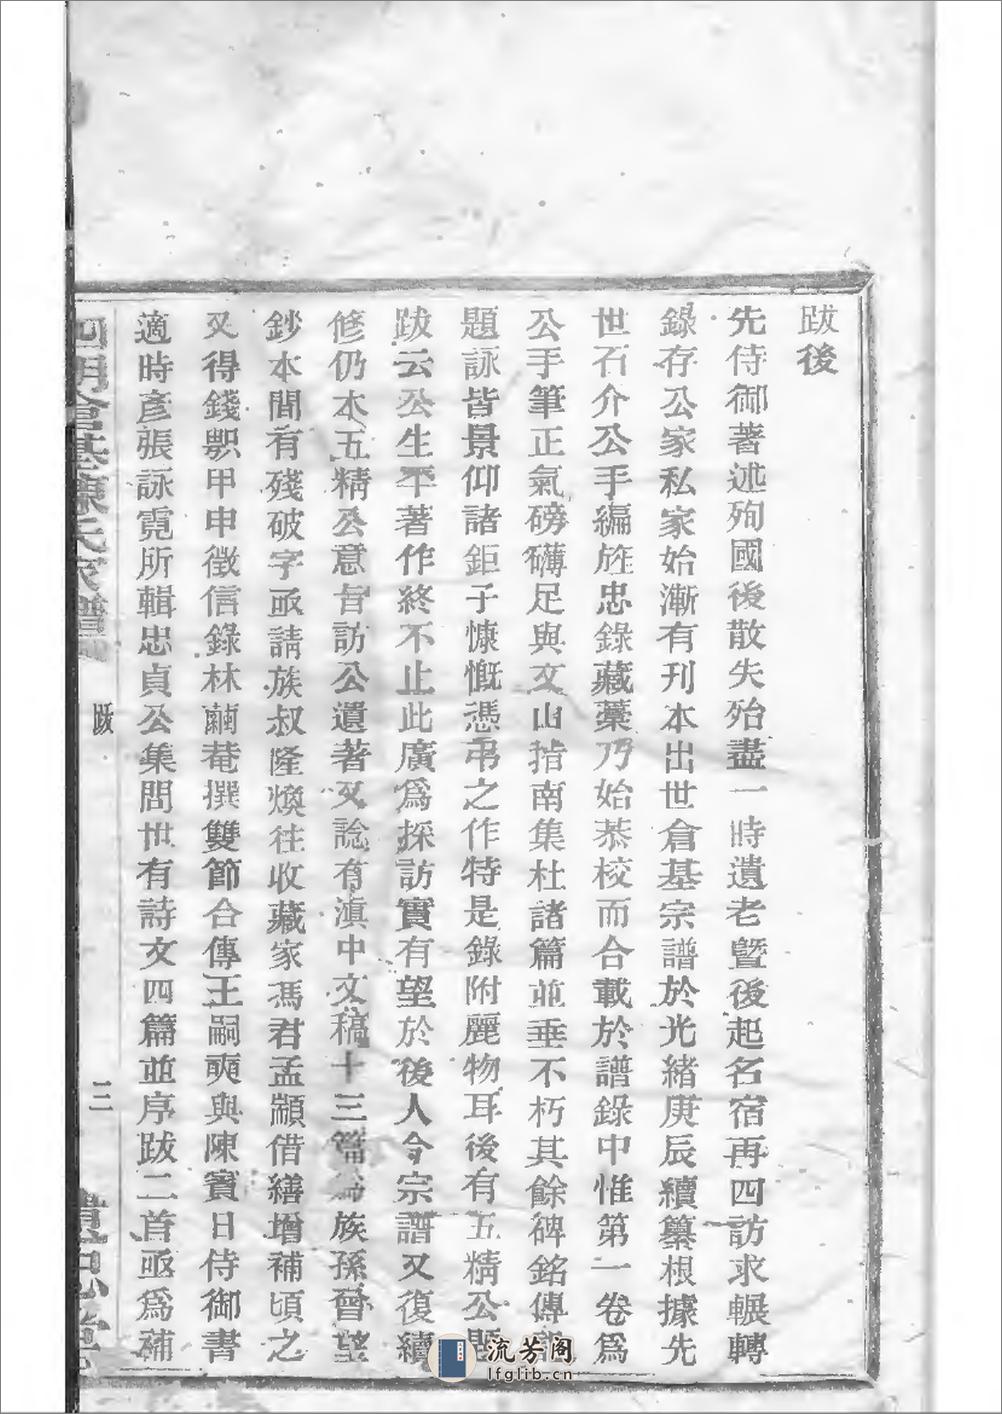 跋後
先侍御著述殉國後散失殆盡一時遺老曁後起名宿再四訪求輾轉
錄存公家私家始漸有刊本出世倉基宗譜於光緒庚辰續纂根據先
世石介公手編旌忠錄藏藁乃始恭校而合載於譜錄中惟第一卷爲
公手筆正氣磅礴足與文山指南集杜諸篇並垂不朽其餘碑銘傳
題詠皆景仰諸鉅子慷慨憑弔之作特是錄附麗物耳後有五精公題
跋云公生平著作終不止此廣爲採訪實有望於後人今宗譜又復續
修仍本五精公意旨訪公遺著又諗有滇中文稿十三篇爲族孫晉堃
鈔本間有殘破字亟請族叔隆煥往收藏家馮君孟顓借繕增補頃之
又得錢甲申徵信錄林繭菴撰雙節合傳王嗣奭與陳寅日侍御書
適時彥張詠霓所輯忠貞公集問世有詩文四篇並序跋二首亟爲補
四明倉基陳氏家譜
跋
三
遺忠堂
流芳阁
lfglib.cn